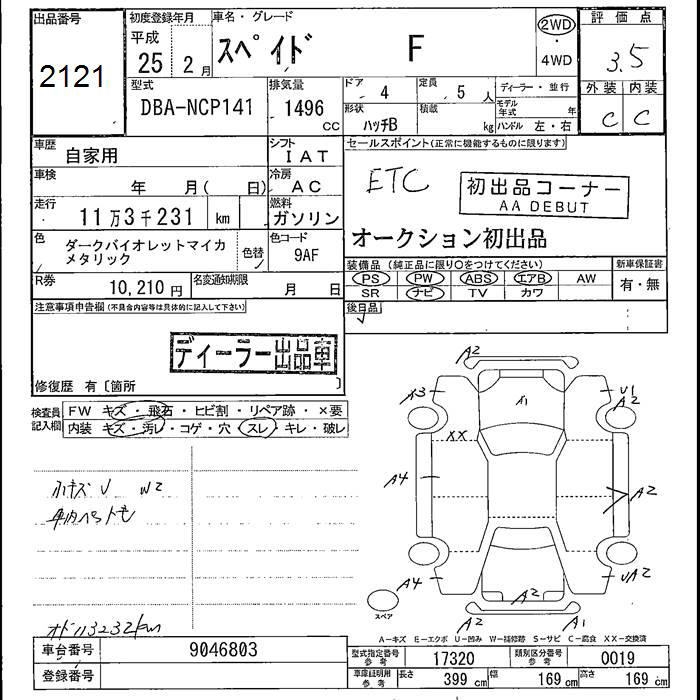 出品番号
2121
初度登録年月
平成
25 2月
車名・グレード
スペイド F
2WD
・
4WD
評価点
3.5
外装 内装
C C
型式
DBA-NCP141
排気量
1496
CC
ドア
4
定員
5人
形状
ハッチB
積載
kg
ディーラー・並行
モデル年式 年
ハンドル 左・右
車歴
自家用
シフト
IAT
車検
年 月( 日)
冷房
AC
走行
11万3千231 km
燃料
ガソリン
色
ダークバイオレットマイカ
メタリック
色替
色コード
9AF
R券
10,210円
名変通知期限
月 日
セールスポイント(正常に機能するものに限ります)
ETC
初出品コーナー
AA DEBUT
オークション初出品
装備品(純正品に限り○をつけてください)
PS PW ABS エアB AW
SR ナビ TV カワ
新車保証書
有・無
後日品
注意事項申告欄(不具合内容等は具体的に記入して下さい)
ディーラー出品車
修復歴 有〔箇所 〕
検査員
記入欄
FW キズ・飛石・ヒビ割・リペア跡・×要
内装 キズ・汚レ・コゲ・穴・スレ・キレ・破レ
小キズ U W2
オド113232km
A2
A3
A1
U1
A2
XX
A4
A2
A4
A2
UA2
A2
A1
スペア
A－キズ E－エクボ U－凹み W－補修跡 S－サビ C－腐食 XX－交換済
車台番号
9046803
登録番号
型式指定番号
参考
17320
類別区分番号
参考
0019
車庫証明用
参考
長さ 399 cm 幅 169 cm 高さ 169 cm